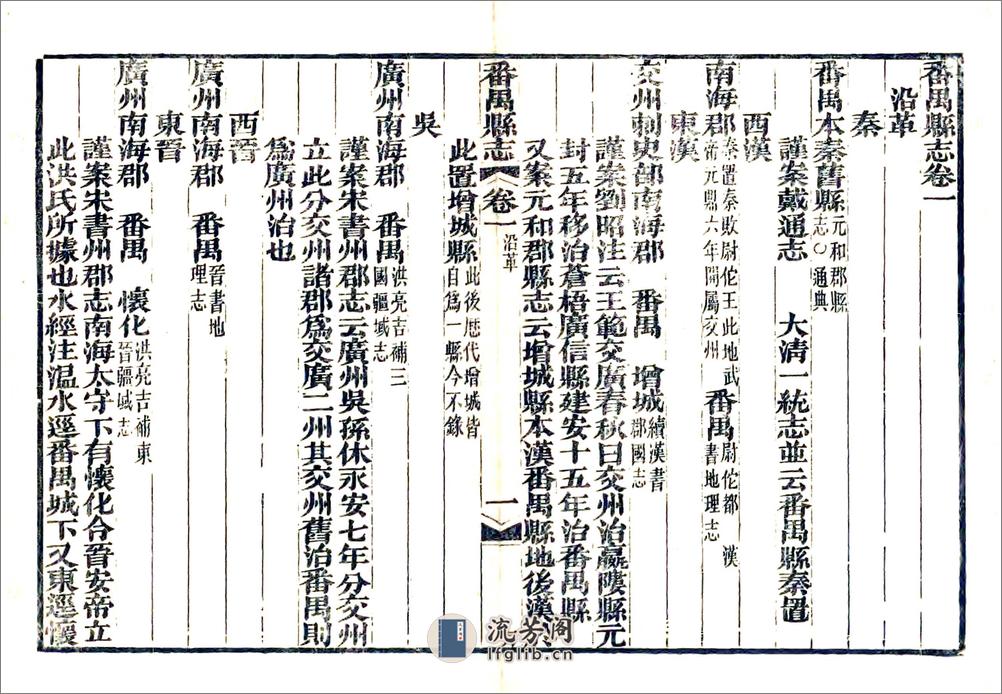 番禺縣志卷一
沿革
秦
番禺本秦舊縣元和郡縣志〇通典
謹案戴通志 大清一統志並云番禺縣秦置
西漢
南海郡秦置秦敗尉佗王此地武帝元鼎六年開屬交州 番禺尉佗都漢書地理志
東漢
交州刺史部南海郡 番禺 增城續漢書郡國志
謹案劉昭注云王範交廣春秋曰交州治羸𨻻縣元
封五年移治蒼梧廣信縣建安十五年治番禺縣
又案元和郡縣志云增城縣本漢番禺縣地後漢於
此置增城縣此後歷代增城皆自為一縣今不錄
番禺縣志 卷一 沿革 一
吳
廣州南海郡 番禺洪亮吉補三國疆域志
謹案宋書州郡志云廣州吳孫休永安七年分交州
立此分交州諸郡為交廣二州其交州舊治番禺則
為廣州治也
西晉
廣州南海郡 番禺晉書地理志
東晉
廣州南海郡 番禺 懷化洪亮吉補東晉疆域志
謹案宋書州郡志南海太守下有懷化令晉安帝立
此洪氏所據也水經注溫水逕番禺城下又東逕懷
流芳阁
lfglib.cn